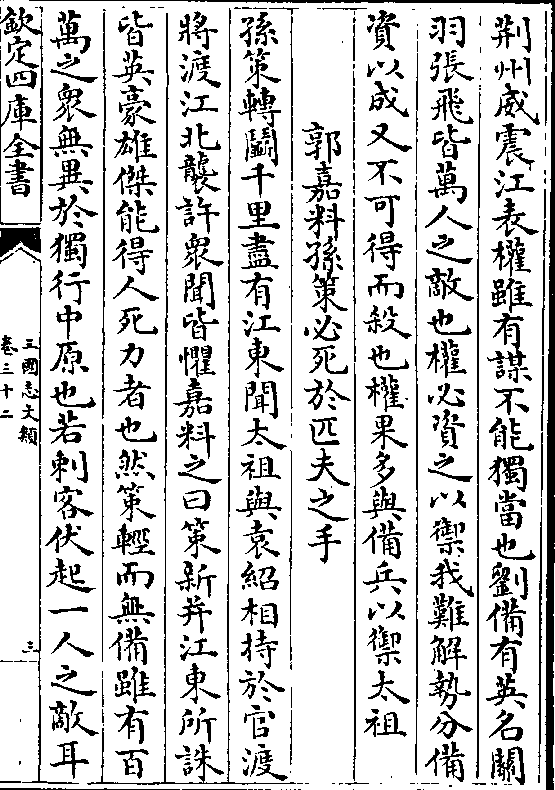 荆州威震江表權雖有謀不能獨當也劉備有英名關
羽張飛皆萬人之敵也權必資之以禦我難解勢分備
資以成又不可得而殺也權果多與備兵以禦太祖
郭嘉料孫策必死於匹夫之手
孫策轉鬬千里盡有江東聞太祖與袁紹相持於官渡
將渡江北襲許衆聞皆懼嘉料之曰策新并江東所誅
皆英豪雄傑能得人死力者也然策輕而無備雖有百
萬之衆無異於獨行中原也若刺客伏起一人之敵耳
欽定四庫全書
三國志文類
卷三十二
三